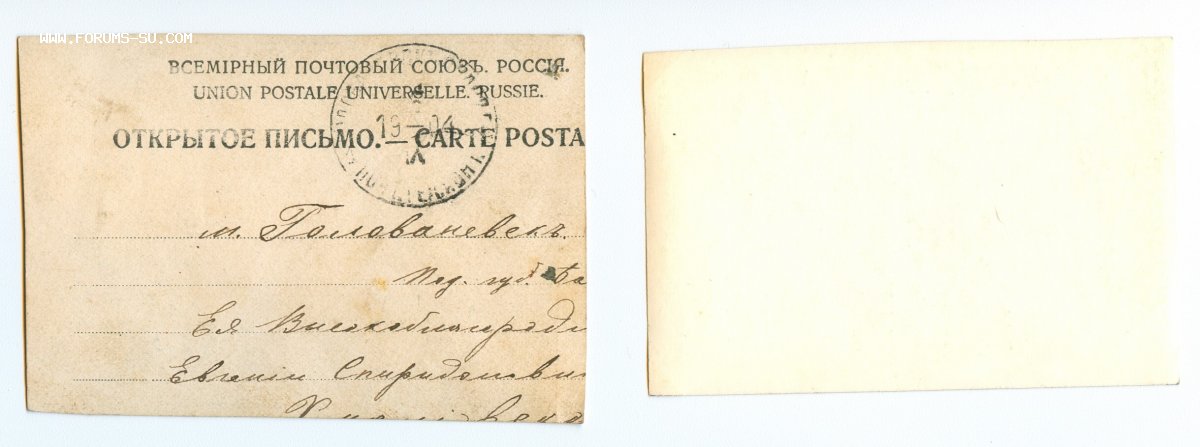 WWW.FORUMS-SU.COM
ВСЕМІРНЫЙ ПОЧТОВЫЙ СОЮЗЪ. РОССІЯ.
UNION POSTALE UNIVERSELLE. RUSSIE.
ОТКРЫТОЕ ПИСЬМО. — CARTE POSTA
19 — 04
IX
м. Голованевскъ.
Под. губ. Ба
Ея Высокоблагороді
Евгеніи Спиридонові